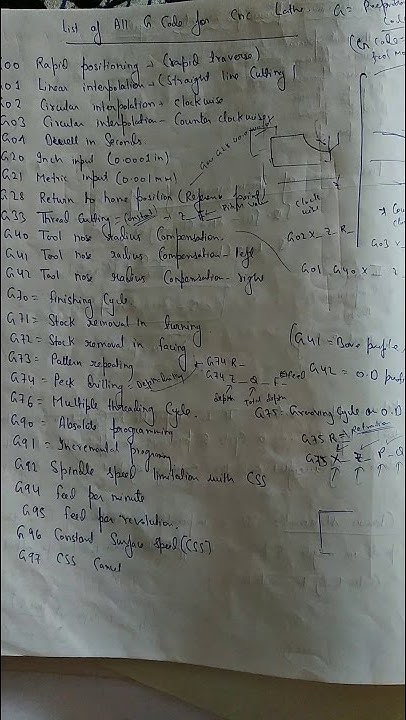 List of All G Code for Cnc Lathe
G = Preparatory
Code
(M Code =
G00 Rapid positioning → (rapid traverse)
G01 Linear interpolation → (Straight line Cutting)
G02 Circular interpolation → clockwise
G03 Circular interpolation - Counter clockwise
G04 Dewell in Seconds.
G20 Inch input (0.0001 in)
G21 Metric input (0.001 mm)
G28 Return to home position (Refrence point)
G33 Thread Cutting - (constant) → Z
Pitch
G40 Tool nose radius Compensation.
G41 Tool nose radius Compensation - left
G42 Tool nose radius Compensation - right
G70 = Finishing Cycle
G71 = Stock removal in turning
G72 = Stock removal in facing
G73 = Pattern repeating
G74 = Peck Drilling
G76 = Multiple threading Cycle.
G90 = Absolute programming
G91 = Incremental programing
G92 Spindle speed limitation with CSS
G94 feed per minute
G95 feed per revolution.
G96 Constant Surface Speed (CSS)
G97 CSS Cancel
clock
wise
G02 X_ Z_ R_
G03
G01 G40 X
(G41 = Bore profile
G42 = O.D prof
G74 R_
G74 Z_ Q_ F
depth
Total depth
G75 = Grooving Cycle on O.D
G75 R
G75 X_ Z_ P_ Q